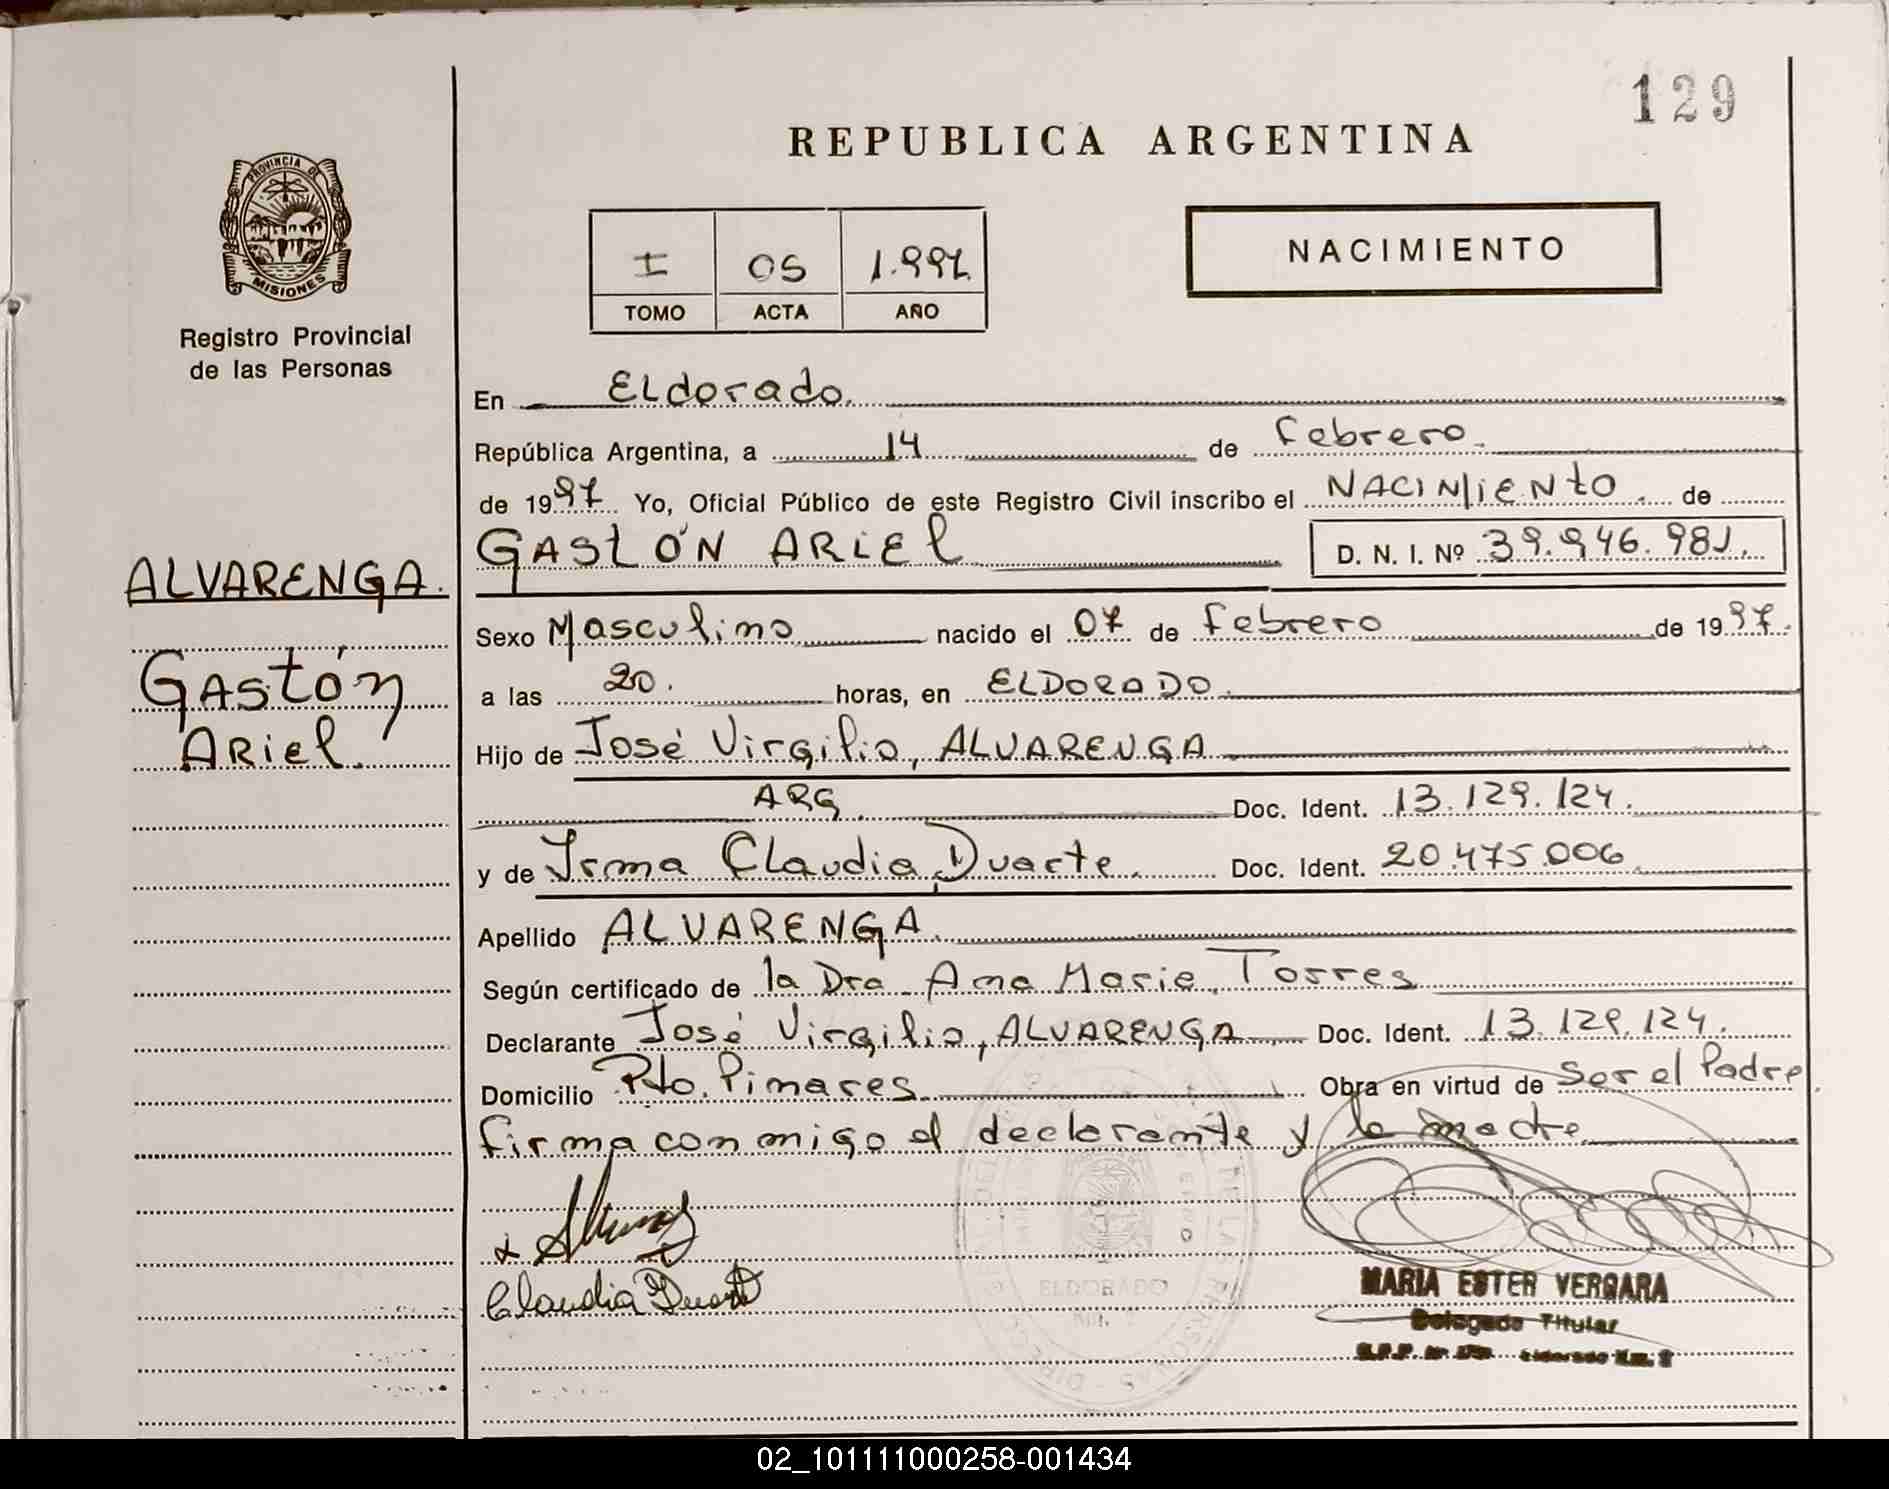 129
REPUBLICA ARGENTINA
PROVINCIA DE
MISIONES
Registro Provincial
de las Personas
I 05 1.997
TOMO ACTA AÑO
NACIMIENTO
En Eldorado.
República Argentina, a 14 de Febrero.
de 1997 Yo, Oficial Público de este Registro Civil inscribo el NACIMIENTO. de
GASTÓN ARIEL D. N. I. Nº 39.946.981.
ALVARENGA.
Gastón
Ariel.
Sexo Masculino nacido el 07 de Febrero de 1997.
a las 20. horas, en ELDORADO.
Hijo de José Virgilio, ALVARENGA
ARG. Doc. Ident. 13.129.124.
y de Irma Claudia, Duarte. Doc. Ident. 20.475.006.
Apellido ALVARENGA.
Según certificado de la Dra. Ana Maria, Torres
Declarante José Virgilio, ALVARENGA Doc. Ident. 13.129.124.
Domicilio Pto. Pinares. Obra en virtud de Ser el Padre.
firma conmigo el declarante y la madre
Claudia Duarte
ELDORADO
MARIA ESTER VERGARA
Delegada Titular
02_101111000258-001434